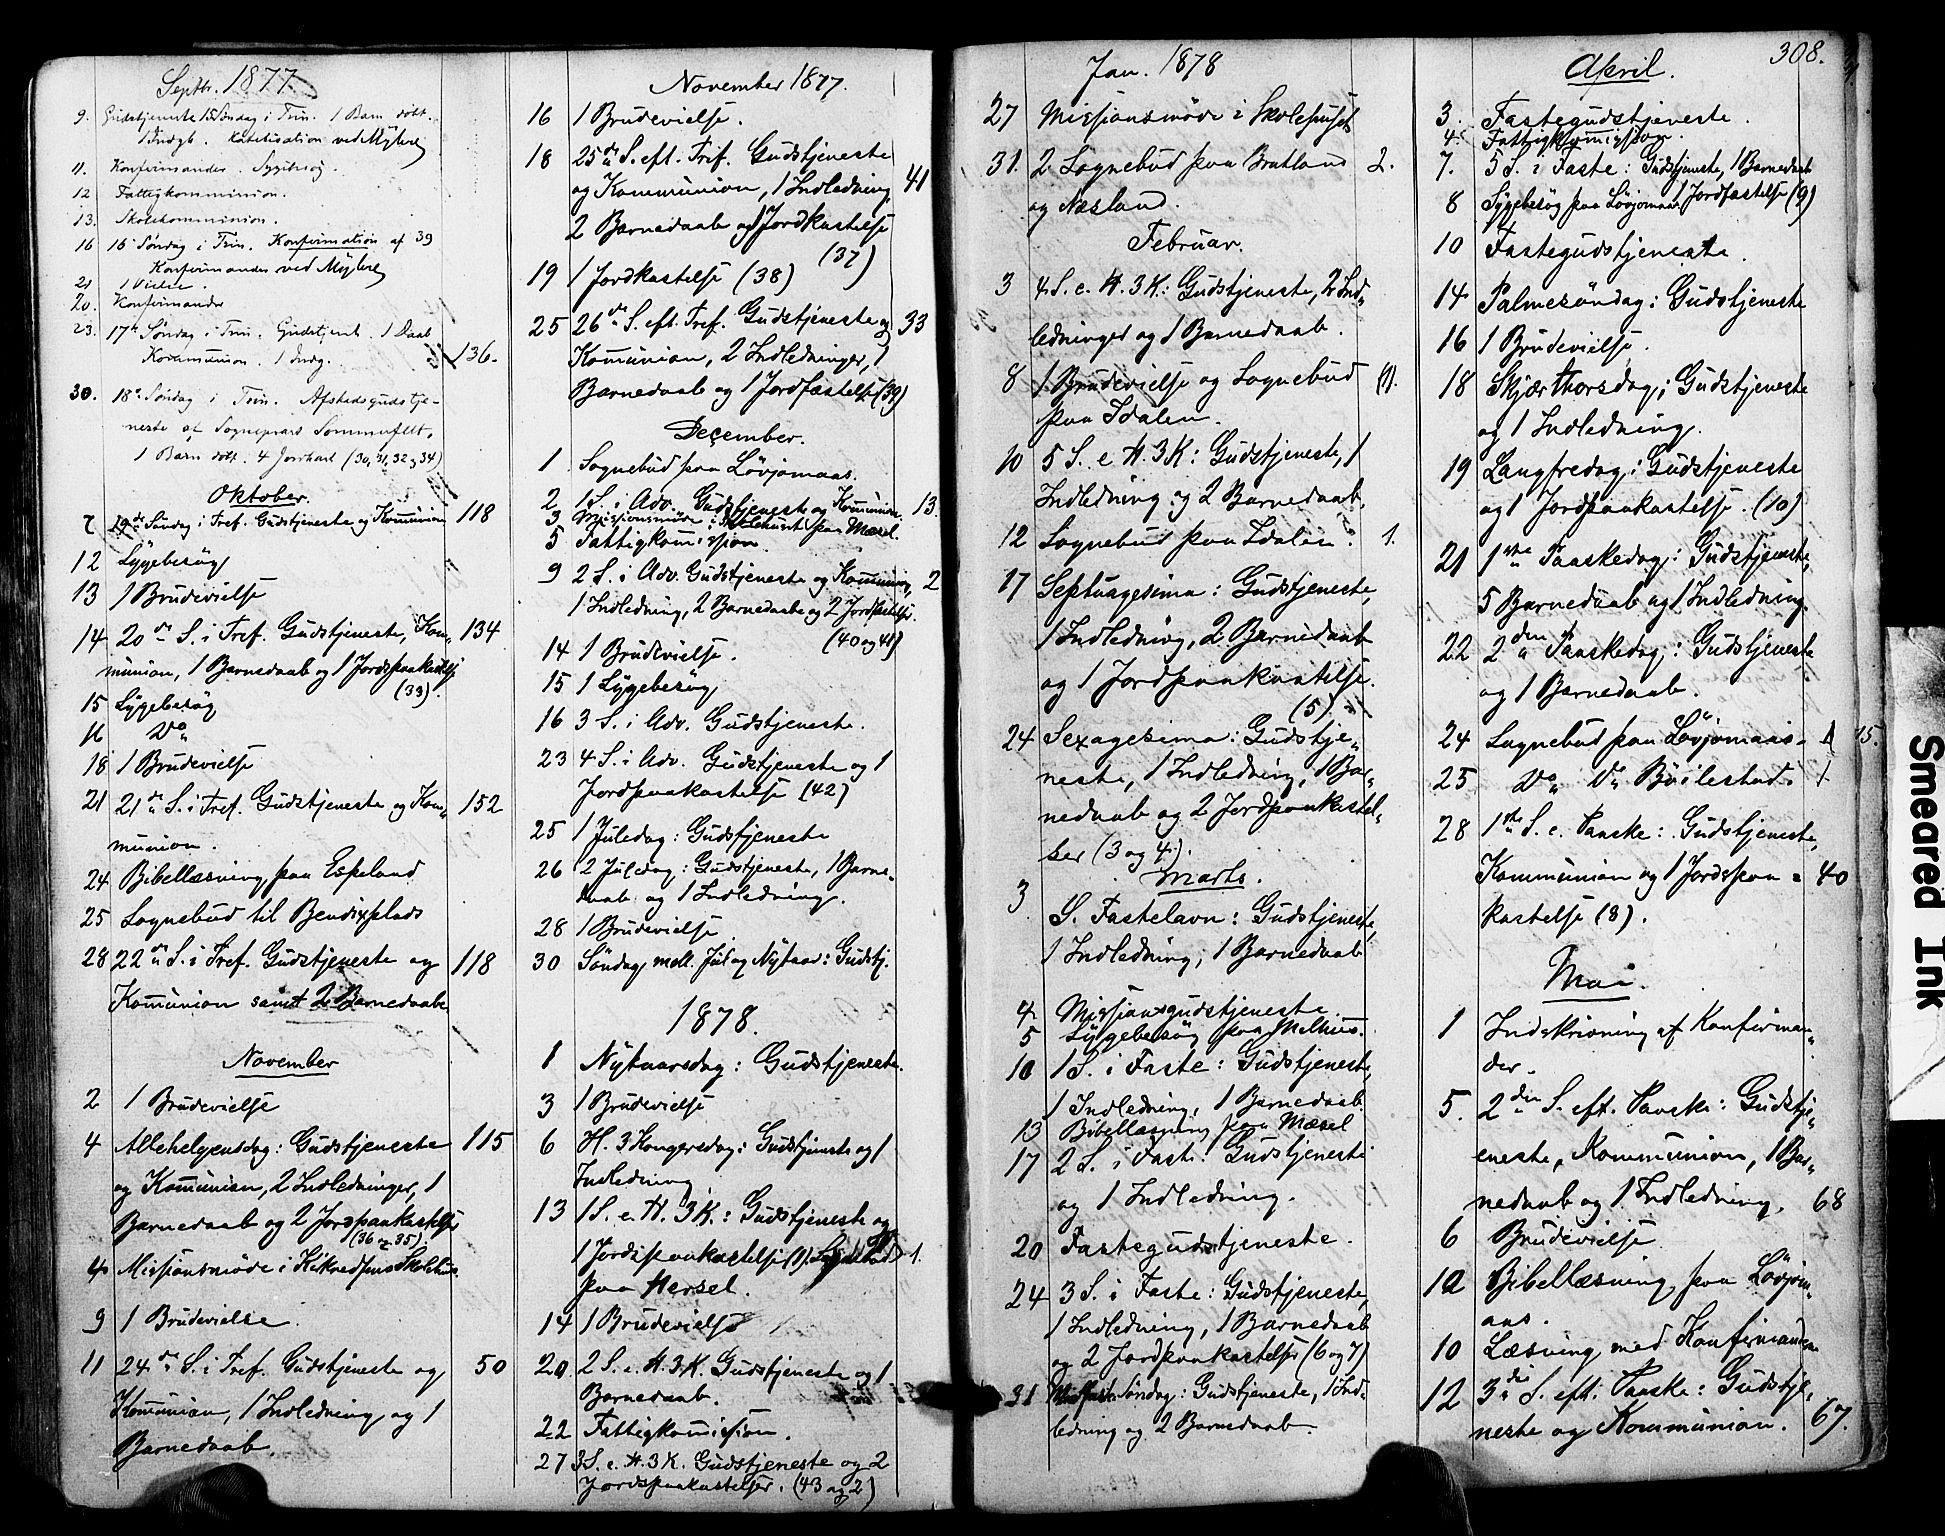 Septbr. 1877
9. Gudstjeneste 15 Søndag i Trin. 1 Barn døbt.
1 Indgk. Katekisation ved Myhre
11. Konfirmander. Sygebesøg.
12 Fattigkommission.
13. Skolekommission.
16 16 Søndag i Trin. Konfirmation af 39
Konfirmander ved Myhre
21 1 Vielse.
20. Konfirmander
23. 17de Søndag i Trin. Gudstjenst. 1 Daab
Kommunion. 1 Indg. 136.
30. 18de Søndag i Trin. Afskedsgudstje-
neste af Sognepræst Sommerfeldt.
1 Barn døbt. 4 Jordkast (30, 31, 32 og 34)
Oktober.
7 19de Søndag i Tref. Gudstjeneste og Kommunion 118
12 Sygebesøg
13 1 Brudevielse
14 20de S. i Tref. Gudstjeneste, Kom- 134
munion, 1 Barnedaab og 1 Jordspaakastelse
(33)
15 Sygebesøg
16 Do
18 1 Brudevielse
21 21de S. i Tref. Gudstjeneste og Kom- 152
munion.
24 Bibellæsning paa Espeland
25 Sognebud til Bendixplads
28 22de S. i Tref. Gudstjeneste og 118
Kommunion samt 2 Barnedaabe
November
2 1 Brudevielse
4 Allehelgensdag: Gudstjeneste 115
og Kommunion, 2 Indledninger, 1
Barnedaab og 2 Jordpaakastelser
(36 og 35).
4 Missionsmøde i Skolehus.
9 1 Brudevielse.
11 24de S. i Tref. Gudstjeneste og 50
Kommunion, 1 Indledning og 1
Barnedaab
November 1877.
16 1 Brudevielse.
18 25de S. eft. Tref. Gudstjeneste
og Kommunion, 1 Indledning, 41
2 Barnedaab og 1 Jordkastelse
(37)
19 1 Jordkastelse (38)
25 26de S. eft. Tref. Gudstjeneste og 33
Kommunion, 2 Indledninger, 1
Barnedaab og 1 Jordfæstelse (39)
December.
1 Sognebud paa Løvjomaas.
2 1 S. i Adv. Gudstjeneste og Kommunion 13.
3 Missionsmøde i Skolehuset paa Mæsel.
5 Fattigkommission.
9 2 S. i Adv. Gudstjeneste og Kommunion, 2
1 Indledning, 2 Barnedaab og 2 Jordfæstelse.
(40 og 41)
14 1 Brudevielse.
15 1 Sygebesøg
16 3 S. i Adv. Gudstjeneste.
23 4 S. i Adv. Gudstjeneste og 1
Jordpaakastelse (42)
25 1 Juledag: Gudstjeneste
26 2 Juledag: Gudstjeneste, 1 Barne-
daab og 1 Indledning.
28 1 Brudevielse
30 Søndag mell. Jul og Nytaar: Gudstj.
1878.
1 Nytaarsdag: Gudstjeneste.
3 1 Brudevielse
6 H. 3 Kongersdag: Gudstjeneste og 1
Indledning
13 1 S. e. H. 3 K.: Gudstjeneste og
1 Jordspaakastelse (1) Sognebud 1.
paa Hersel.
14 1 Brudevielse
20. 2 S. e. H. 3 K. Gudstjeneste og 1
Barnedaab.
22 Fattigkommission.
27 3 S. e. H. 3 K. Gudstjeneste og 2
Jordspaakastelser. (43 og 2)
Jan. 1878
27 Missionsmøde i Skolehuset
31. 2 Sognebud paa Bratland 2.
og Næsland.
Februar.
3 4 S. e. H. 3 K.: Gudstjeneste, 2 Ind-
ledninger og 1 Barnedaab.
8 1 Brudevielse og Sognebud (1).
paa Idalen.
10 5 S. e H. 3 K: Gudstjeneste, 1
Indledning og 2 Barnedaab.
12 Sognebud paa Idalen. 1.
17 Septuagesima: Gudstjeneste,
1 Indledning, 2 Barnedaab
og 1 Jordpaakastelse.
(5)
24 Sexagesima: Gudstje-
neste, 1 Indledning, 1 Bar-
nedaab og 2 Jordpaakastel-
ser (3 og 4).
Marts.
3 S. Fastelavn: Gudstjeneste,
1 Indledning, 1 Barnedaab
4 Missionsgudstjeneste.
5 Sygebesøg paa Melhus.
10 1 S. i Faste: Gudstjeneste,
1 Indledning, 1 Barnedaab
13 Bibellæsning paa Mæsel
17 2 S. i Faste: Gudstjeneste
og 1 Indledning.
20 Fastegudstjeneste.
24 3 S. i Faste: Gudstjeneste,
1 Indledning, 1 Barnedaab
og 2 Jordpaakastelser (6 og 7)
31 Midfaste Søndag: Gudstjeneste, 1 Ind-
ledning og 2 Barnedaab.
308.
April.
3. Fastegudstjeneste.
4. Fattigkommission.
7. 5 S. i Faste: Gudstjeneste, 1 Barnedaab
8 Sygebesøg paa Løvjomaas 1 Jordfæstelse (9)
10 Fastegudstjeneste.
14 Palmesøndag: Gudstjeneste
16 1 Brudevielse.
18 Skjærthorsdag: Gudstjeneste
og 1 Indledning.
19 Langfredag: Gudstjeneste
og 1 Jordpaakastelse. (10)
21 1ste Paaskedag: Gudstjeneste,
5 Barnedaab og 1 Indledning.
22 2den Paaskedag: Gudstjeneste
og 1 Barnedaab.
24 Sognebud paa Løvjomaas. 1 15.
25 Do Do Bøilestad. 1
28 1ste S. e. Paaske: Gudstjeneste,
Kommunion og 1 Jordspaa- 40
kastelse (8).
Mai.
1 Indskrivning af Konfirman-
der.
5. 2den S. eft. Paaske: Gudstj-
eneste, Kommunion, 1 Bar-
nedaab og 1 Indledning. 68
6 Brudevielse
10 Bibellæsning paa Løvjom-
aas.
10 Læsning med Konfirmanderne
12 3die S. eft. Paaske: Gudstje-
neste og Kommunion. 67.
Smeared Ink